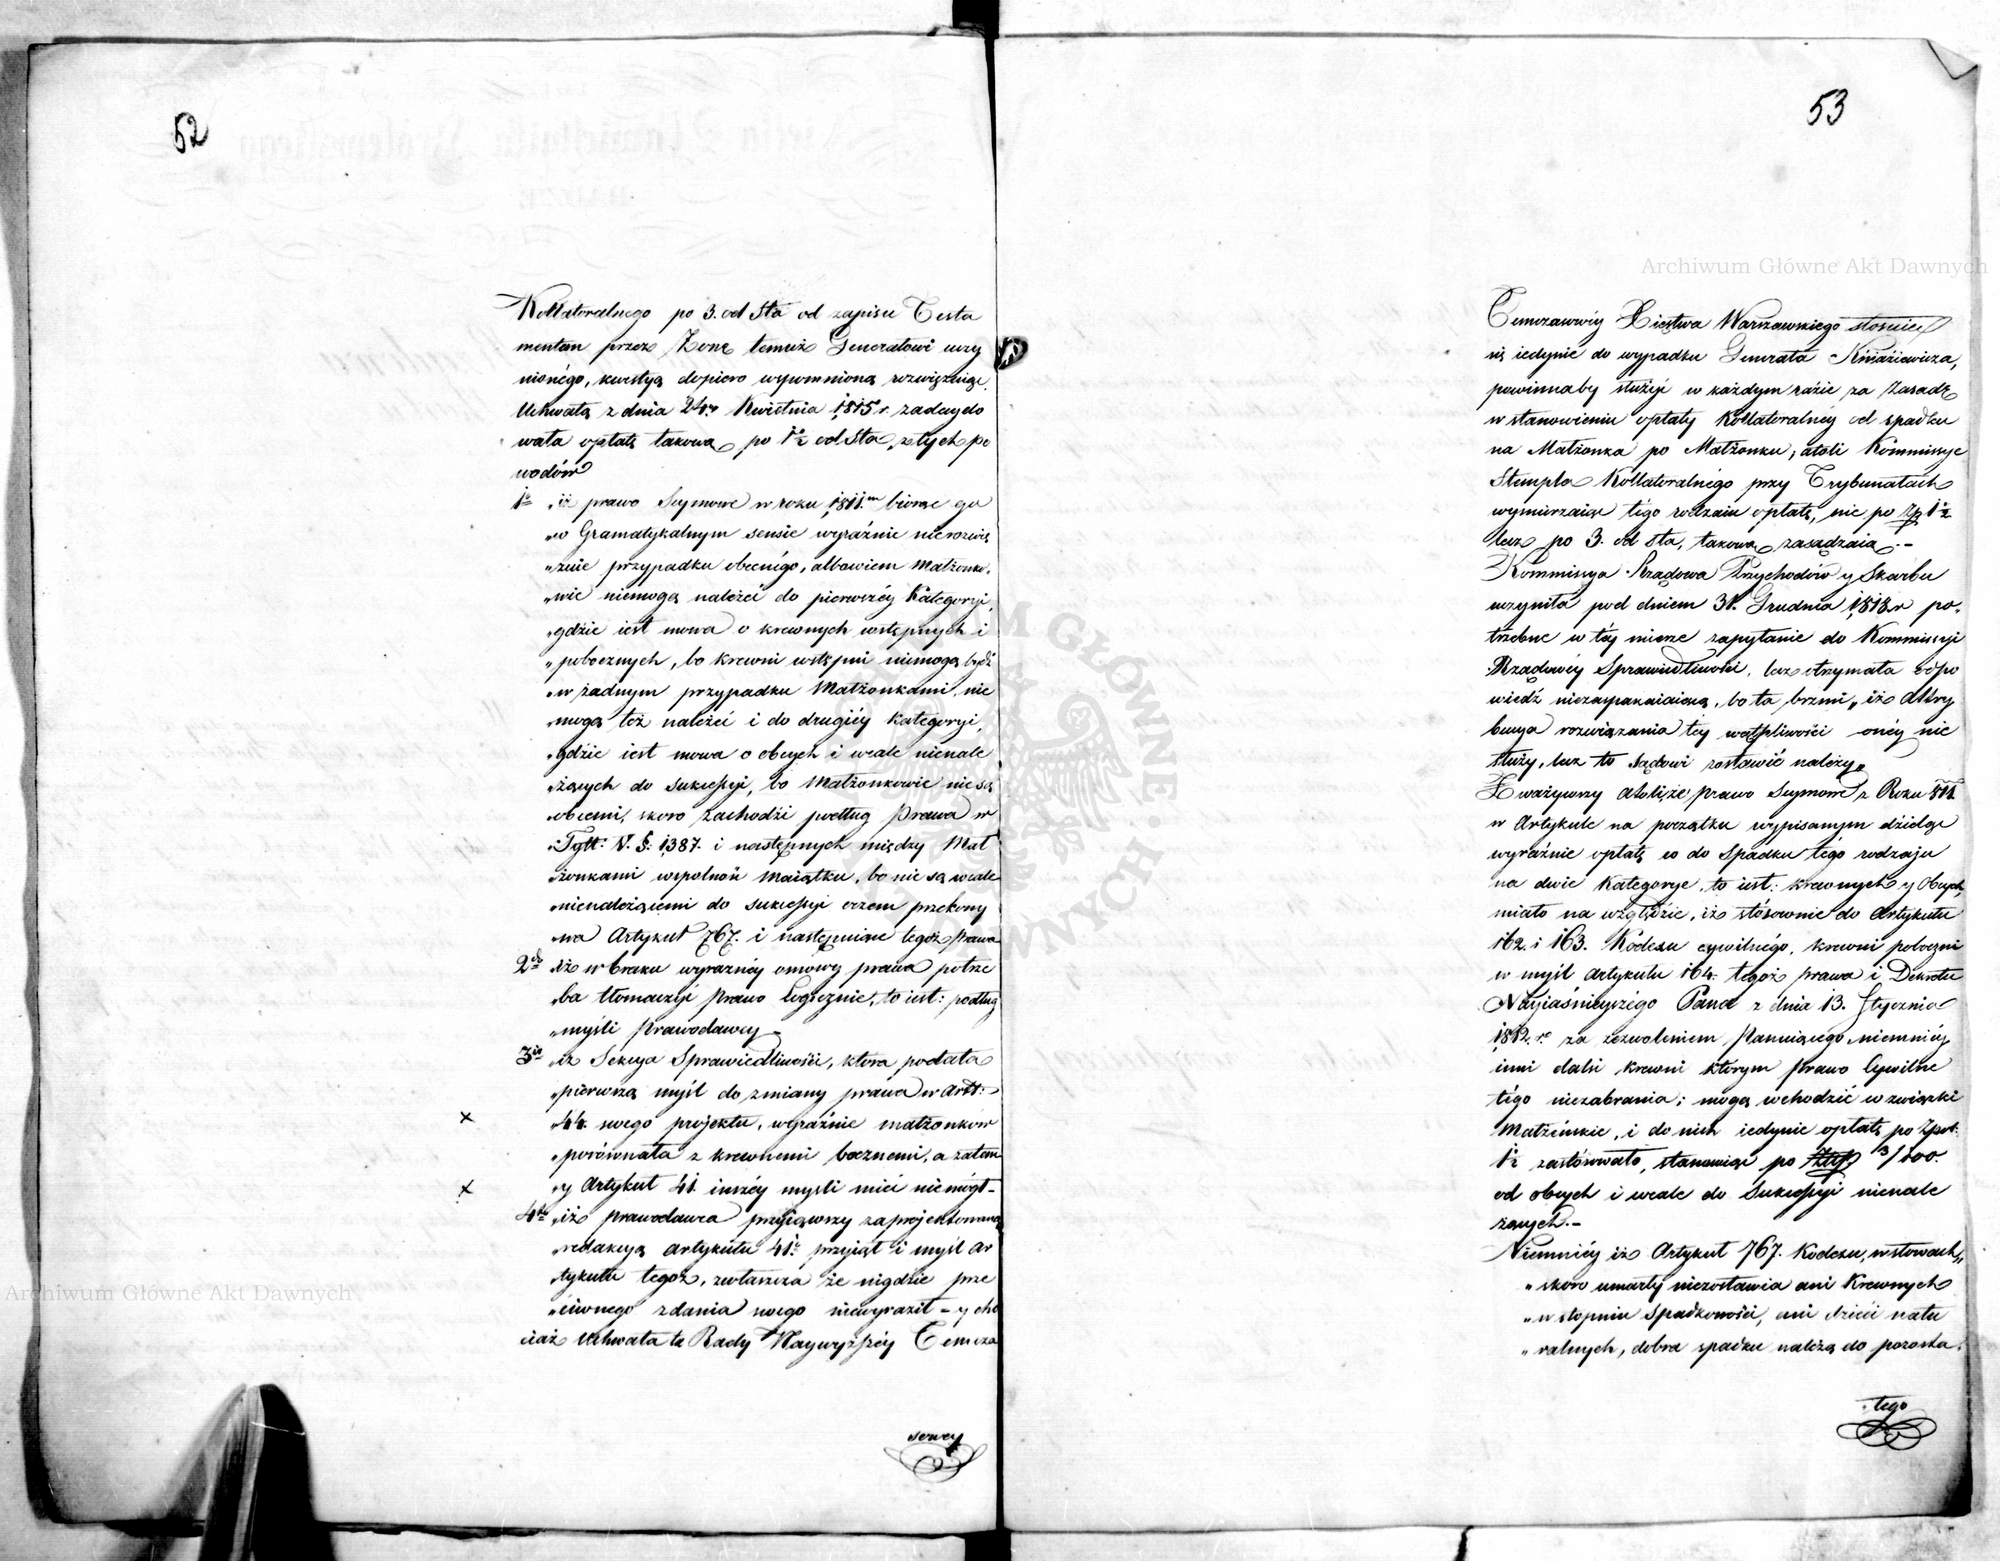 52
Kollateralnego po 3. od Sta od zapisu Testa
mentem przez Żonę temuż Generałowi uczy
nionego, kwestyą dopiero wspomnioną rozwiązuiąc
Uchwałą z dnia 24go Kwietnia 1815 r. zadecydo
wała opłatę takową po 1½ od Sta, z tych po
wodów
1o „iż prawo Seymowe w roku 1811.m biorąc go
„w Gramatykalnym sensie wyraźnie nierozwią
„zuie przypadku obecnégo, albowiem Małżonko„
„wie niemogą należeć do pierwszéy Kategoryi,
„gdzie iest mowa o krewnych wstępnych i
„pobocznych, bo krewni wstępni niemogą bydź
„w żadnym przypadku Małżonkami, nie
„mogą téż należéć i do drugiéy Kategoryi,
„gdzie iest mowa o obcych i wcale nienale
„żących do sukcessyi, bo Małżonkowie nie są
„obcemi, skoro zachodzi podług Prawa w
„Tytt: V. §. 1387. i następnych między Mał
„żonkami wspolność Maiątku, bo nie są wcale
„nienależącemi do sukcessyi oczem przekony
„wa Artykuł 767. i następuiące tegoż Prawa
2do „Iż w braku wyraźnéy omówy prawa potrze
„ba tłomaczyć prawo logicznie, to iest: podług
„myśli Prawodawcy –
3io „iż Sekcya Sprawiedliwości, która podała
„pierwszą myśl do zmiany prawa w Artt:
× „44. swego projektu, wyraźnie małżonków
„porównała z krewnemi bocznemi, a zatem
× „y Artykuł 41. inszéy myśli mieć niemógł –
4to „iż prawodawca przyiąwszy zaprojektowaną
„redakcyą artykułu 41o przyiął i myśl Ar
„tykułu tegoż, zwłaszcza że nigdzie prze
„ciwnego zdania swego niewyraził – y cho
ciaż Uchwała ta Rady Naywyższéy Tymcza
sowey
53
Tymczasowéy Xięstwa Warszawskiego stosuiąc
się iedynie do wypadku Generała Kniaziewicza,
powinnaby służyć w każdym razie za Zasadę
w stanowieniu opłaty Kollateralnéy od spadku
na Małżonka po Małżonku, atoli Kommissye
Stempla Kollateralnégo przy Trybunałach
wymierzaiąc tégo rodzaiu opłatę, nie po Zp 1½
lecz po 3. od sta, takową zasądzaią. –
Kommissya Rządowa Przychodów y Skarbu
uczyniła pod dniem 31. Grudnia 1818 r po„
trzebne w téy mierze zapytanie do Kommissyi
Rządowéy Sprawiedliwości, lecz otrzymała odpo
wiedź niezaspakaiaiącą, bo ta brzmi „iż Attry
bucya rozwiązania téy wątpliwości onéy nie
służy, lecz to Sądowi zostawić należy„
Zważywszy atoli, że prawo Seymowe z Roku 811.
w Artykule na początku wypisanym dzieląc
wyraźnie opłatę co do Spadku tégo rodzaju
na dwie Kategorye, to iest: krewnych y Obcych,
miało na względzie, iż stósownie do Artykułu
162. i 163. Kodexu cywilnégo, krewni poboczni
w myśl Artykułu 164. tegoż prawa i Dekretu
Nayiaśnieyszégo Pana z dnia 13. Stycznia
1812. r. za zezwoleniem Panuiącego niemniéy
inni dalsi krewni którym Prawo Cywilne
tégo niezabrania; mogą wchodzić w związki
Małżeńskie, i do nich iedynie opłatę po Zpol:
1½ zastósowało, stanowiąc po 3/100.
od obcych i wcale do Sukcessyi nienale
żących. –
Niemniéy iż Artykuł 767. Kodexu, w słowach„
„skoro umarły niezostawia ani Krewnych
„w stopniu Spadkowości, ani dzieci natu
„ralnych, dobra spadku należą do pozosta„
tego
Archiwum Główne Akt Dawnych
Archiwum Główne Akt Dawnych